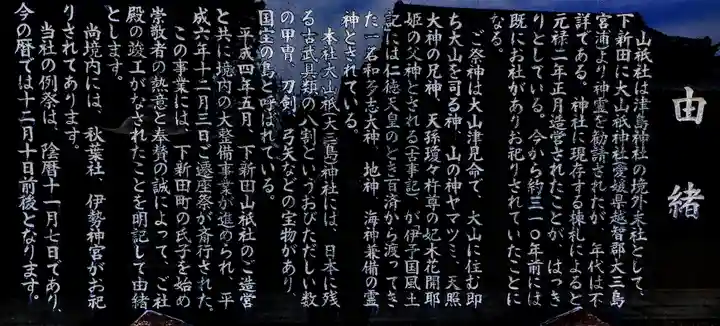 由緒
山祇社は津島神社の境外末社として、
下新田に大山祇神社愛媛県越智郡大三島
宮浦より神霊を勧請されたが、年代は不
詳である。神社に現存する棟札によると
元禄二年正月造営されたことが、はっき
りとしている。今から約三一〇年前には
既にお社がありお祀りされていたことに
なる。
ご祭神は大山津見命で、大山に住む即
ち大山を司る神、山の神ヤマツミ、天照
大神の兄神、天孫瓊々杵尊の妃木花開耶
姫の父神とされる(古事記)が伊予国風土
記には仁徳天皇のとき百済から渡ってき
た一名和多志大神、地神、海神兼備の霊
神とされている。
本社大山祇(大三島)神社には、日本に残
る古武具類の八割というおびただしい数
の甲冑、刀剣、弓矢などの宝物があり、
国宝の島と呼ばれている。
平成四年五月、下新田山祇社のご造営
と共に境内の大整備事業が進められ、平
成六年十二月三日ご遷座祭が斎行された。
この事業には、下新田町の氏子を始め
崇敬者の熱意と奉賛の誠によって、ご社
殿の竣工がなされたことを明記して由緒
とします。
尚境内には、秋葉社、伊勢神宮がお祀
りされてあります。
当社の例祭は、陰暦十一月七日であり、
今の暦では十二月十日前後となります。